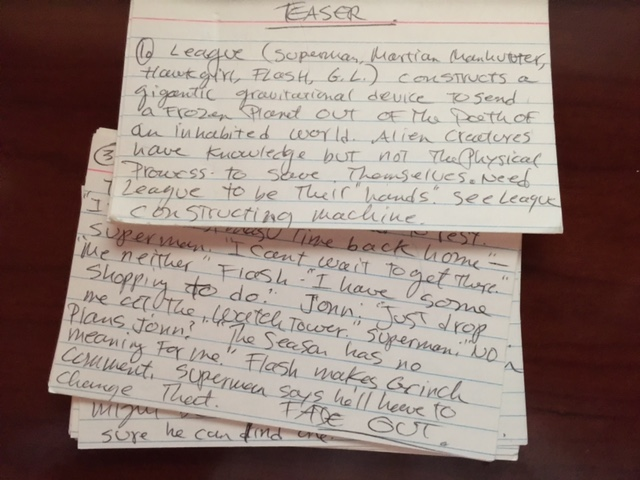 TEASER
① League (Superman, Martian Manhunter,
Hawkgirl, Flash, G.L.) constructs a
gigantic gravitational device to send
a frozen planet out of the path of
an inhabited world. Alien creatures
have knowledge but not the physical
prowess to save themselves. Need
League to be their "hands". See League
constructing machine.
③
time back home"
Superman. "I cant wait to get there."
"Me neither" Flash. "I have some
shopping to do." Jonn: "Just drop
me at the Watchtower." Superman: "No
plans, Jonn?" "The season has no
meaning for me" Flash makes Grinch
comment. Superman says he'll have to
change that. FADE OUT.
might
sure he can find one